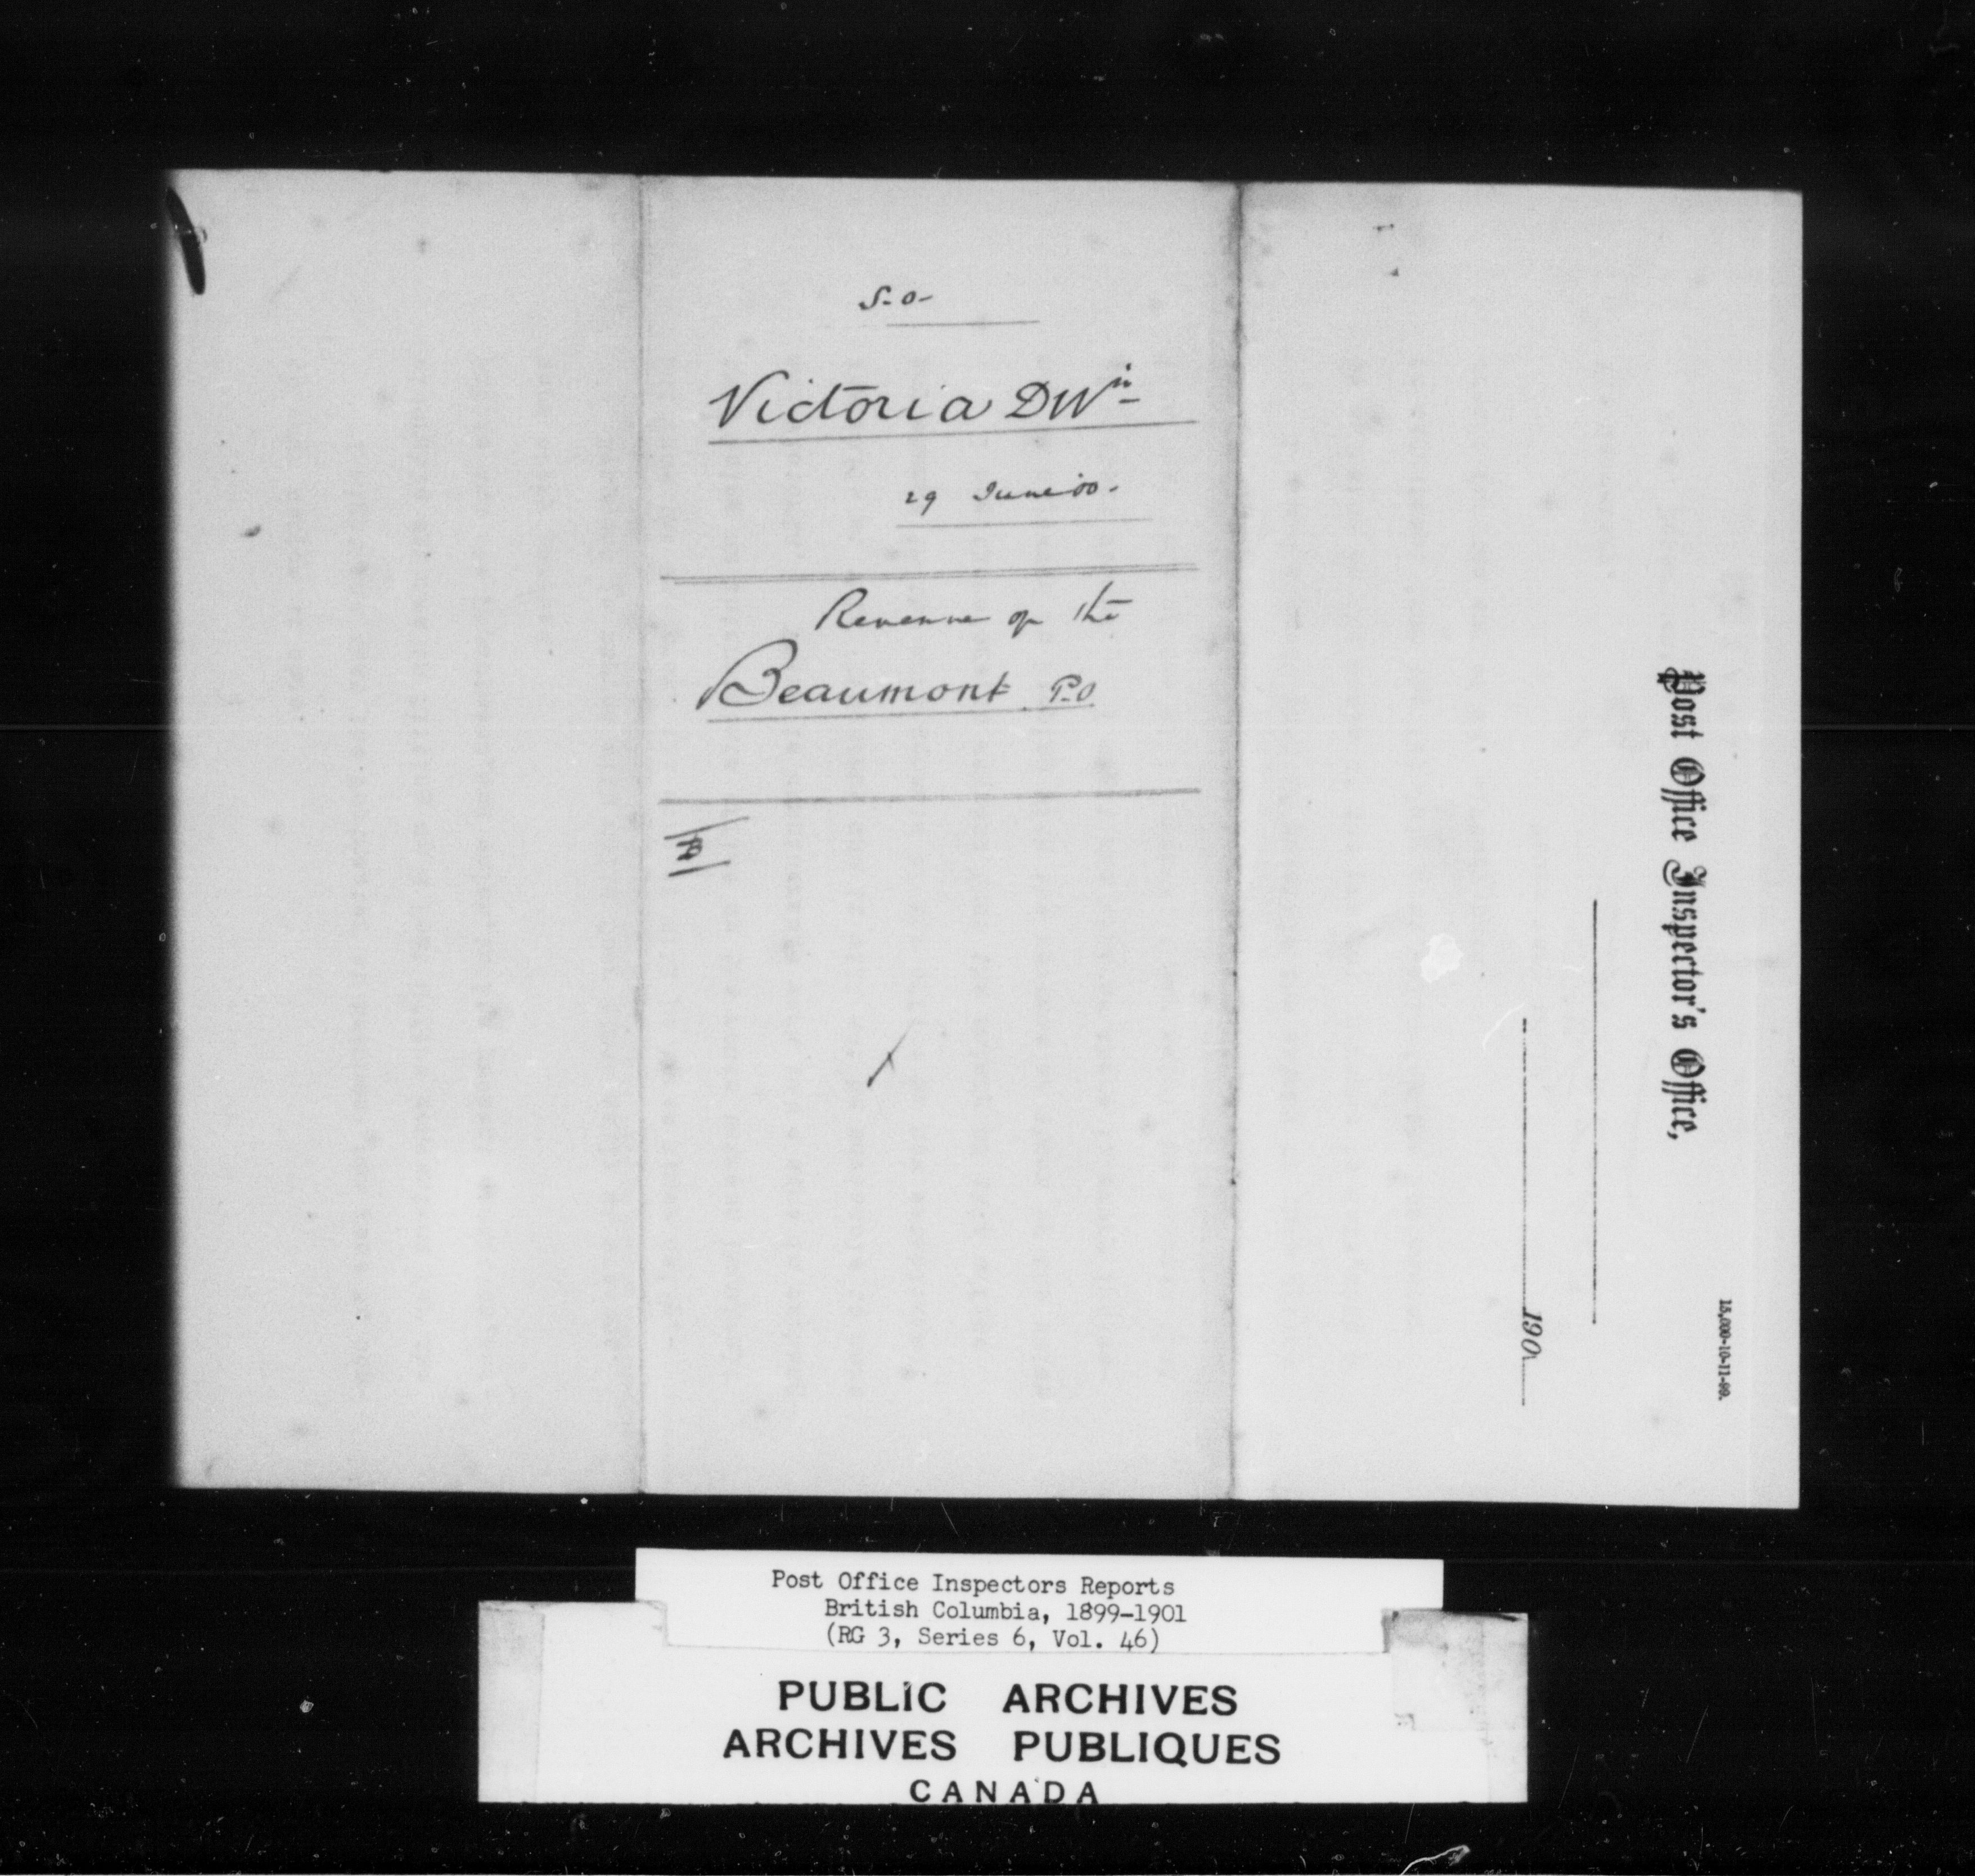 S.O.
Victoria Dn
29 June 00.
Revenue of the
Beaumont P.O.
Post Office Inspector's Office,
190
15,000-10-11-99.
Post Office Inspectors Reports
British Columbia, 1899-1901
(RG 3, Series 6, Vol. 46)
PUBLIC ARCHIVES
ARCHIVES PUBLIQUES
CANADA